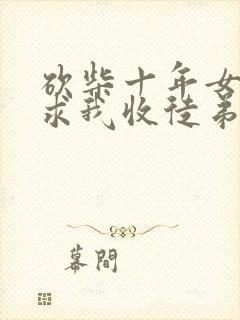 砍柴十年女
求我收徒弟
幕間